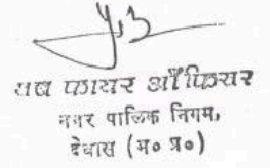 सब फायर ऑफिसर
नगर पालिक निगम,
देवास (म० प्र०)